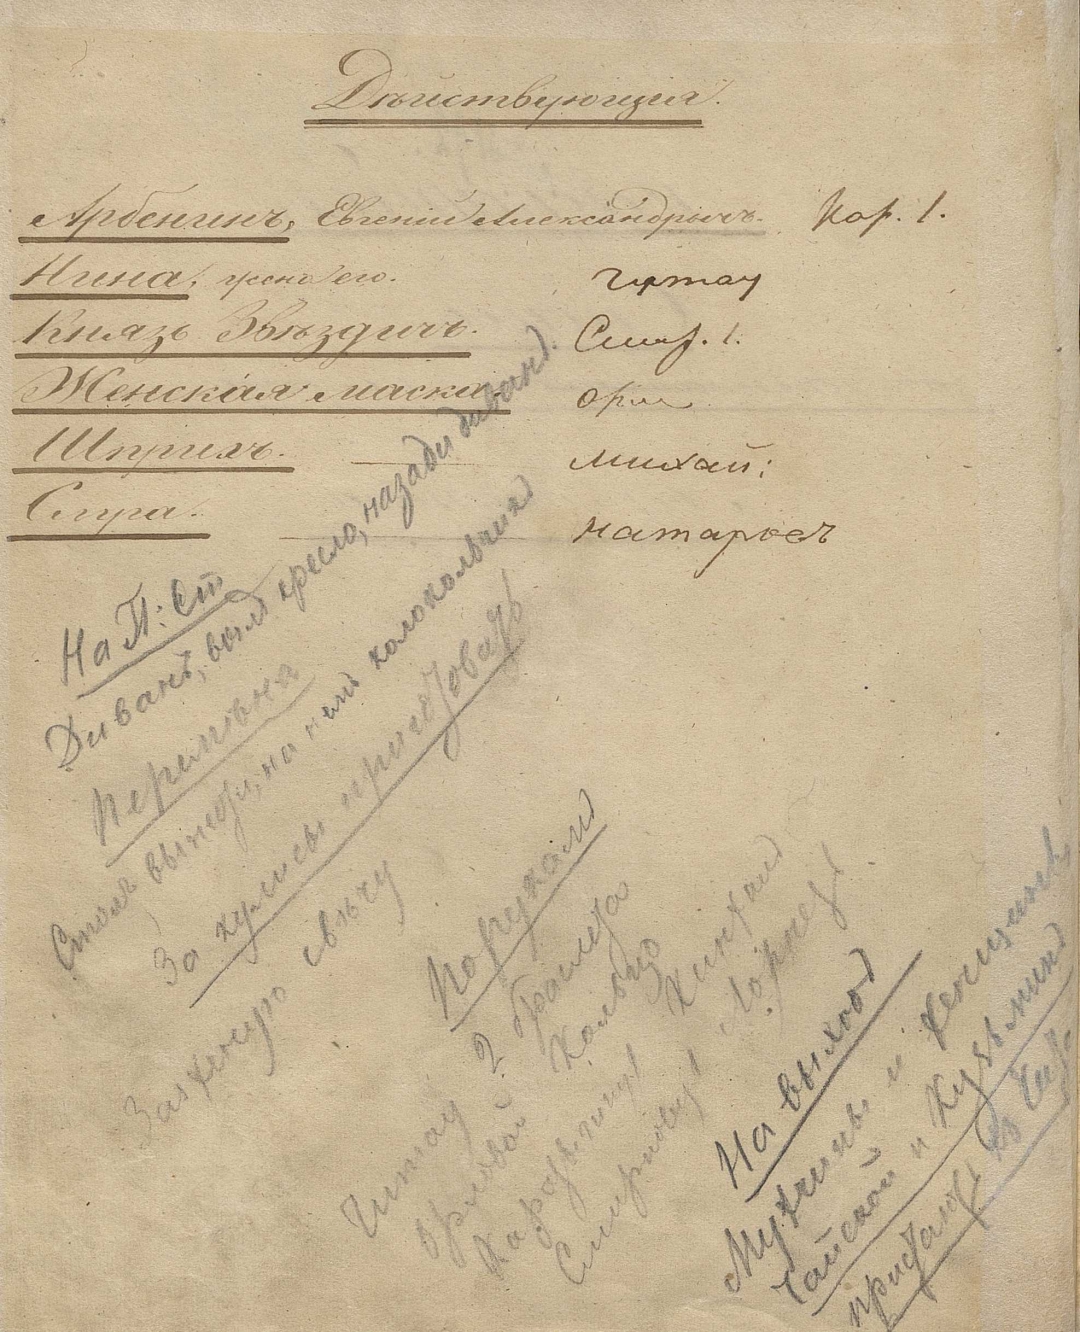 Дѣйствующія.
Арбенинъ, Евгеній Александрычъ. Кар. 1.
Нина, жена его. Читау
Князь Звѣздичъ. Смир. 1.
Женская маска. Орл
Шприхъ. Михай:
Слуга. Натарова
На П: Ст
Диванъ, выл кресло, назади диванъ.
Перемѣна
Столъ вынести, на немъ колокольчик
За кулисы приготовать
Зажженую свѣчу
По рукамъ
Читау 2 браслета
Орловой Кольцо
Каратыгину Кинжал
Смирнову Лорнет
На выход
Мужчины и Женщины
и Кузьмина